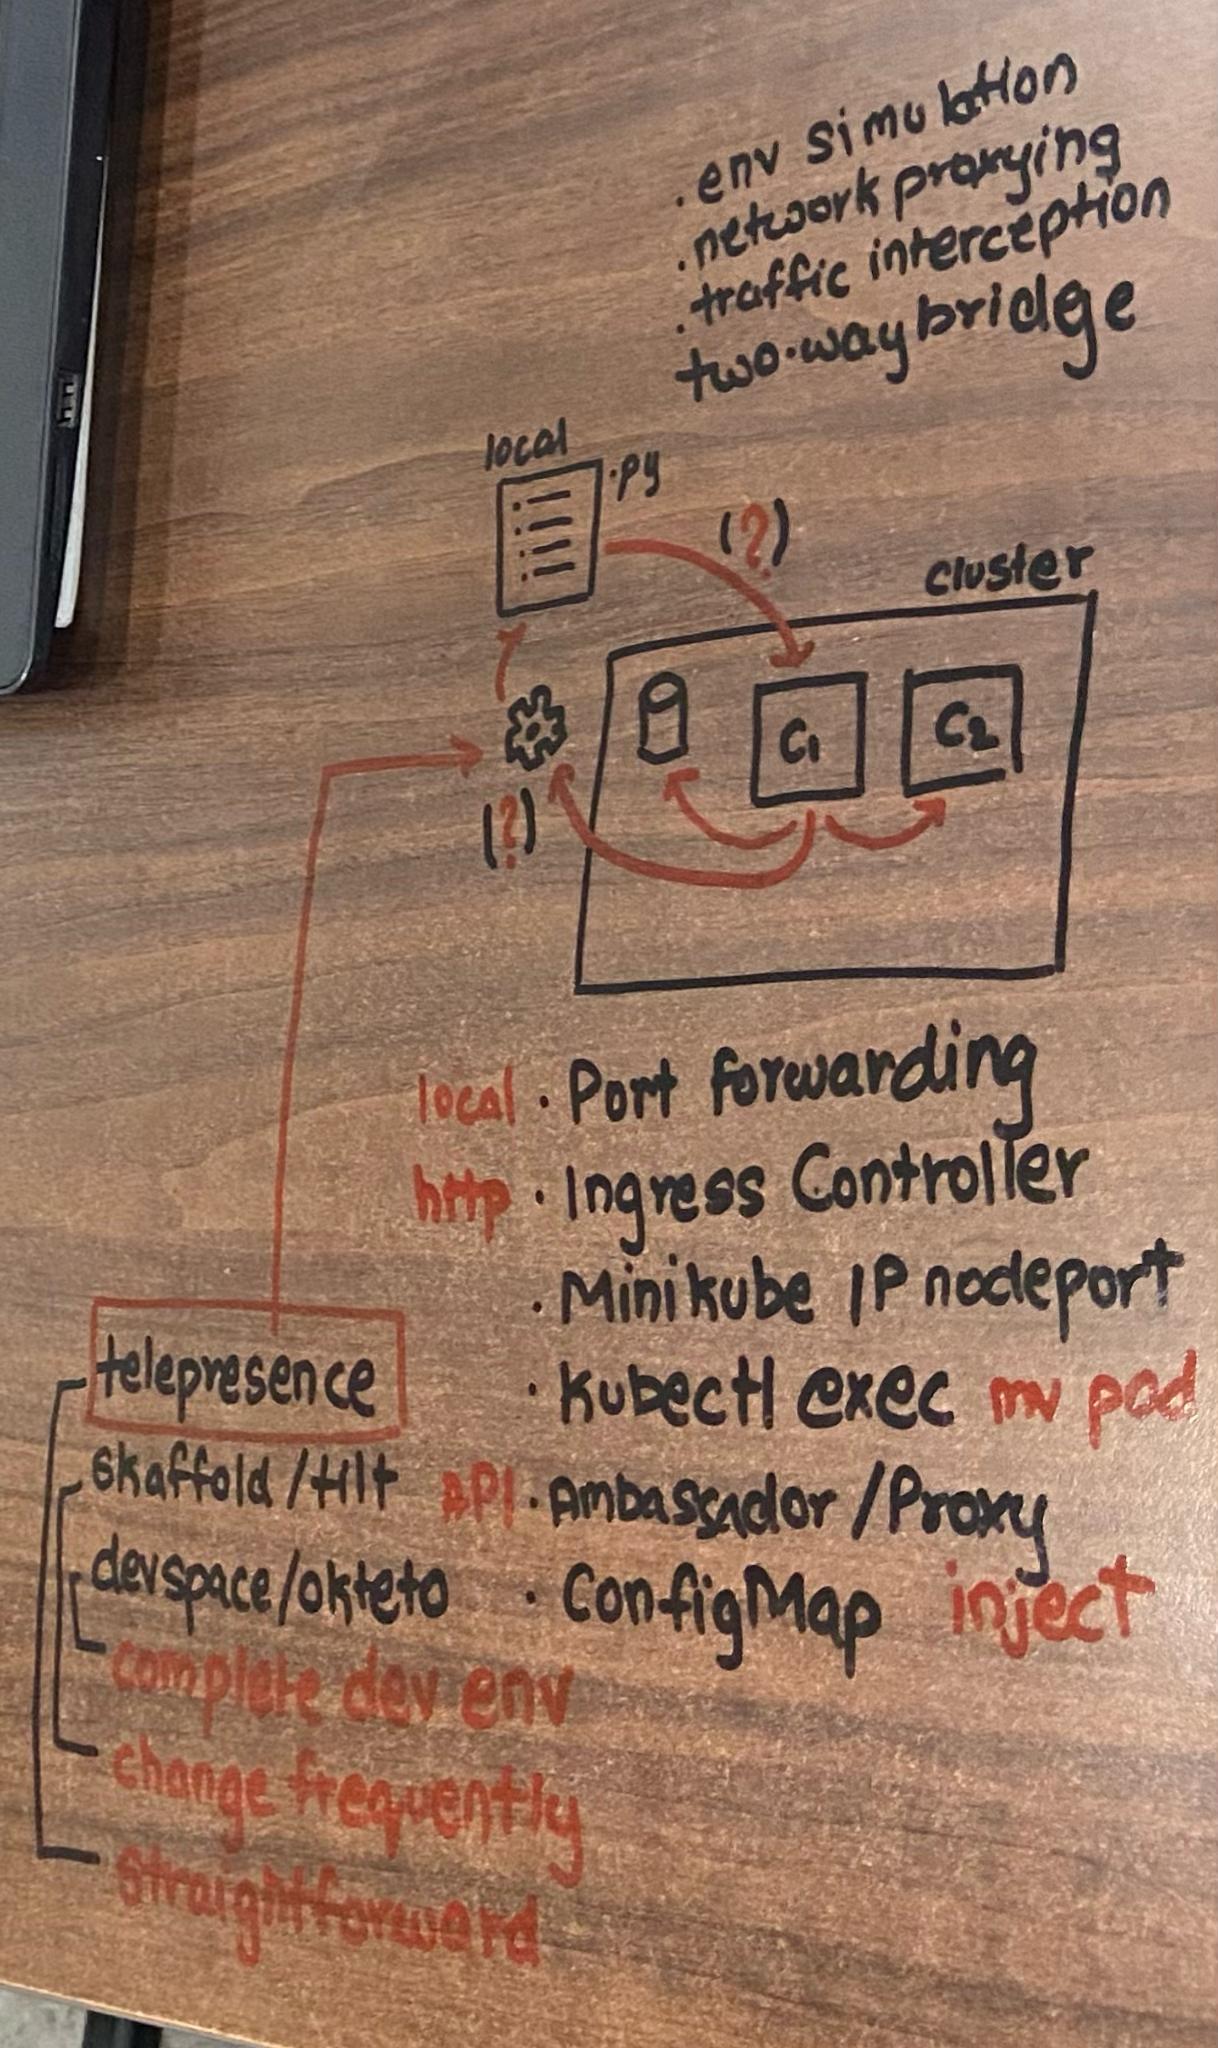 . env simulation
. network proxying
. traffic interception
two-way bridge
local
.py
(?)
cluster
C1
C2
(?)
local . Port forwarding
http . Ingress Controller
. Minikube IP nodeport
. Kubectl exec mv pod
API . Ambassador / Proxy
. ConfigMap inject
telepresence
skaffold / tilt
devspace/okteto
complete dev env
change frequently
straightforward